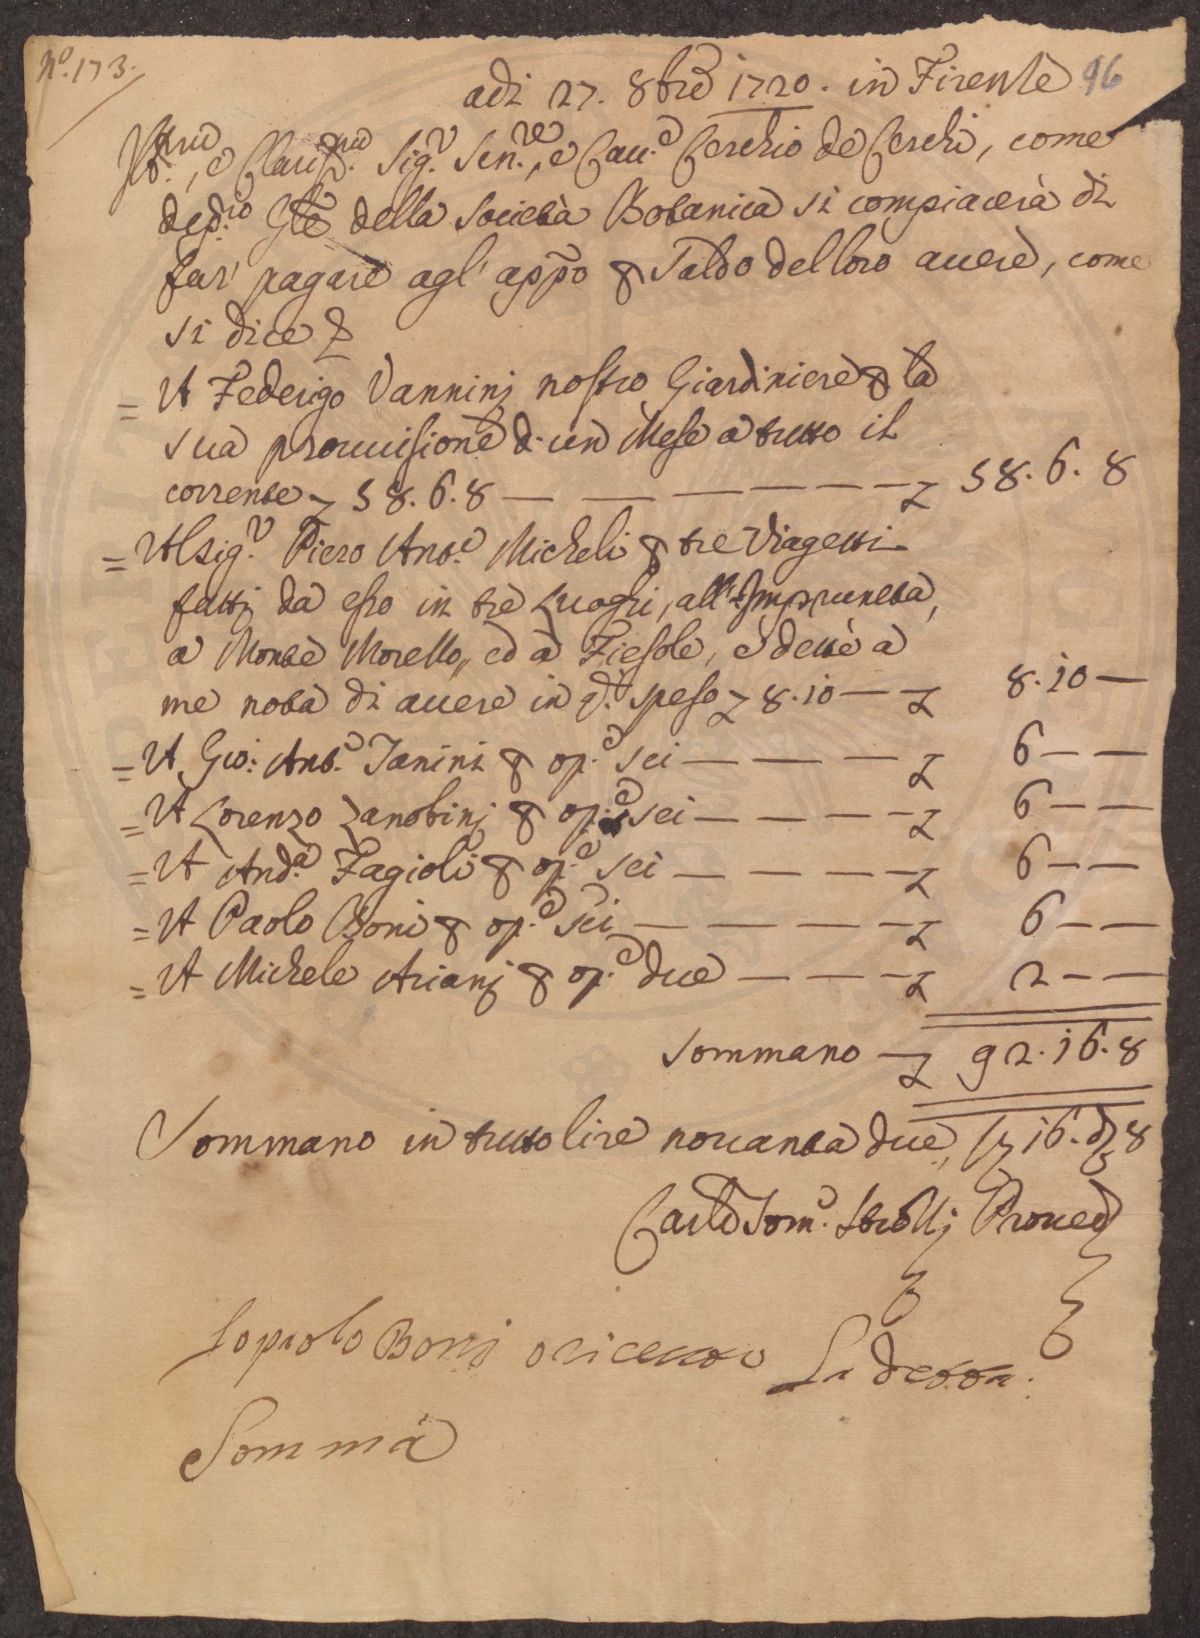 N.o 173.
adi 27. 8bre 1720. in Firenze 96
Ill.mo, e Clariss.mo Sig.r Sen.re, e Cau.e Cerchio de Cerchi, come
dep.rio Gle della Società Botanica si compiacerà di
far' pagare agl' appo p Saldo del loro auere, come
si dice
= A Federigo Vannini nostro Giardiniere p la
sua prouuisione d'un Mese a tutto il
corrente £ 58.6.8 — — — — — — £ 58.6.8
= Al Sig.r Piero Ant.o Micheli p tre Viagetti
fatti da esso in tre Luoghi, all'Impruneta,
a Monte Morello, ed a Fiesole, e dette a
me nota di auere in d.i speso £ 8.10 — — £ 8.10 —
= A Gio: Ant.o Janini p op.e sei — — — — £ 6 — —
= A Lorenzo Zanobini p op.e sei — — — — £ 6 — —
= A And.a Fagioli p op.e sei — — — — £ 6 — —
= A Paolo Boni p op.e sei — — — — — £ 6 — —
= A Michele Ariani p op.e due — — — £ 2 — —
Sommano — £ 92.16.8
Sommano in tutto lire nouanta due, s 16. d 8
Carlo Tom.o Strozzi Proued
Io paolo Boni o riceuto La detta
Somma